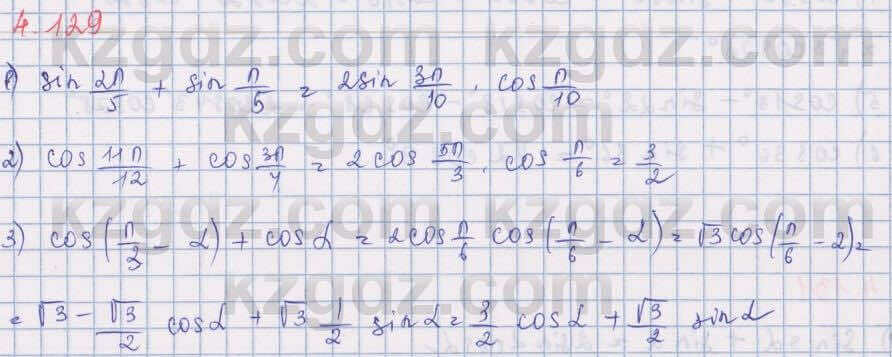 4.129
1) sin 2π/5 + sin π/5 = 2sin 3π/10 · cos π/10
2) cos 11π/12 + cos 3π/4 = 2 cos 5π/3 · cos π/6 = 3/2
3) cos(π/3 - α) + cos α = 2cos π/6 cos(π/6 - α) = √3 cos(π/6 - 2) =
= √3 - √3/2 cos α + √3 1/2 sin α = 3/2 cos α + √3/2 sin α
kzgdz.com kzgdz.com
kzgdz.com kzgdz.com
kzgdz.com kzgdz.com
kzgdz.com kzgdz.com